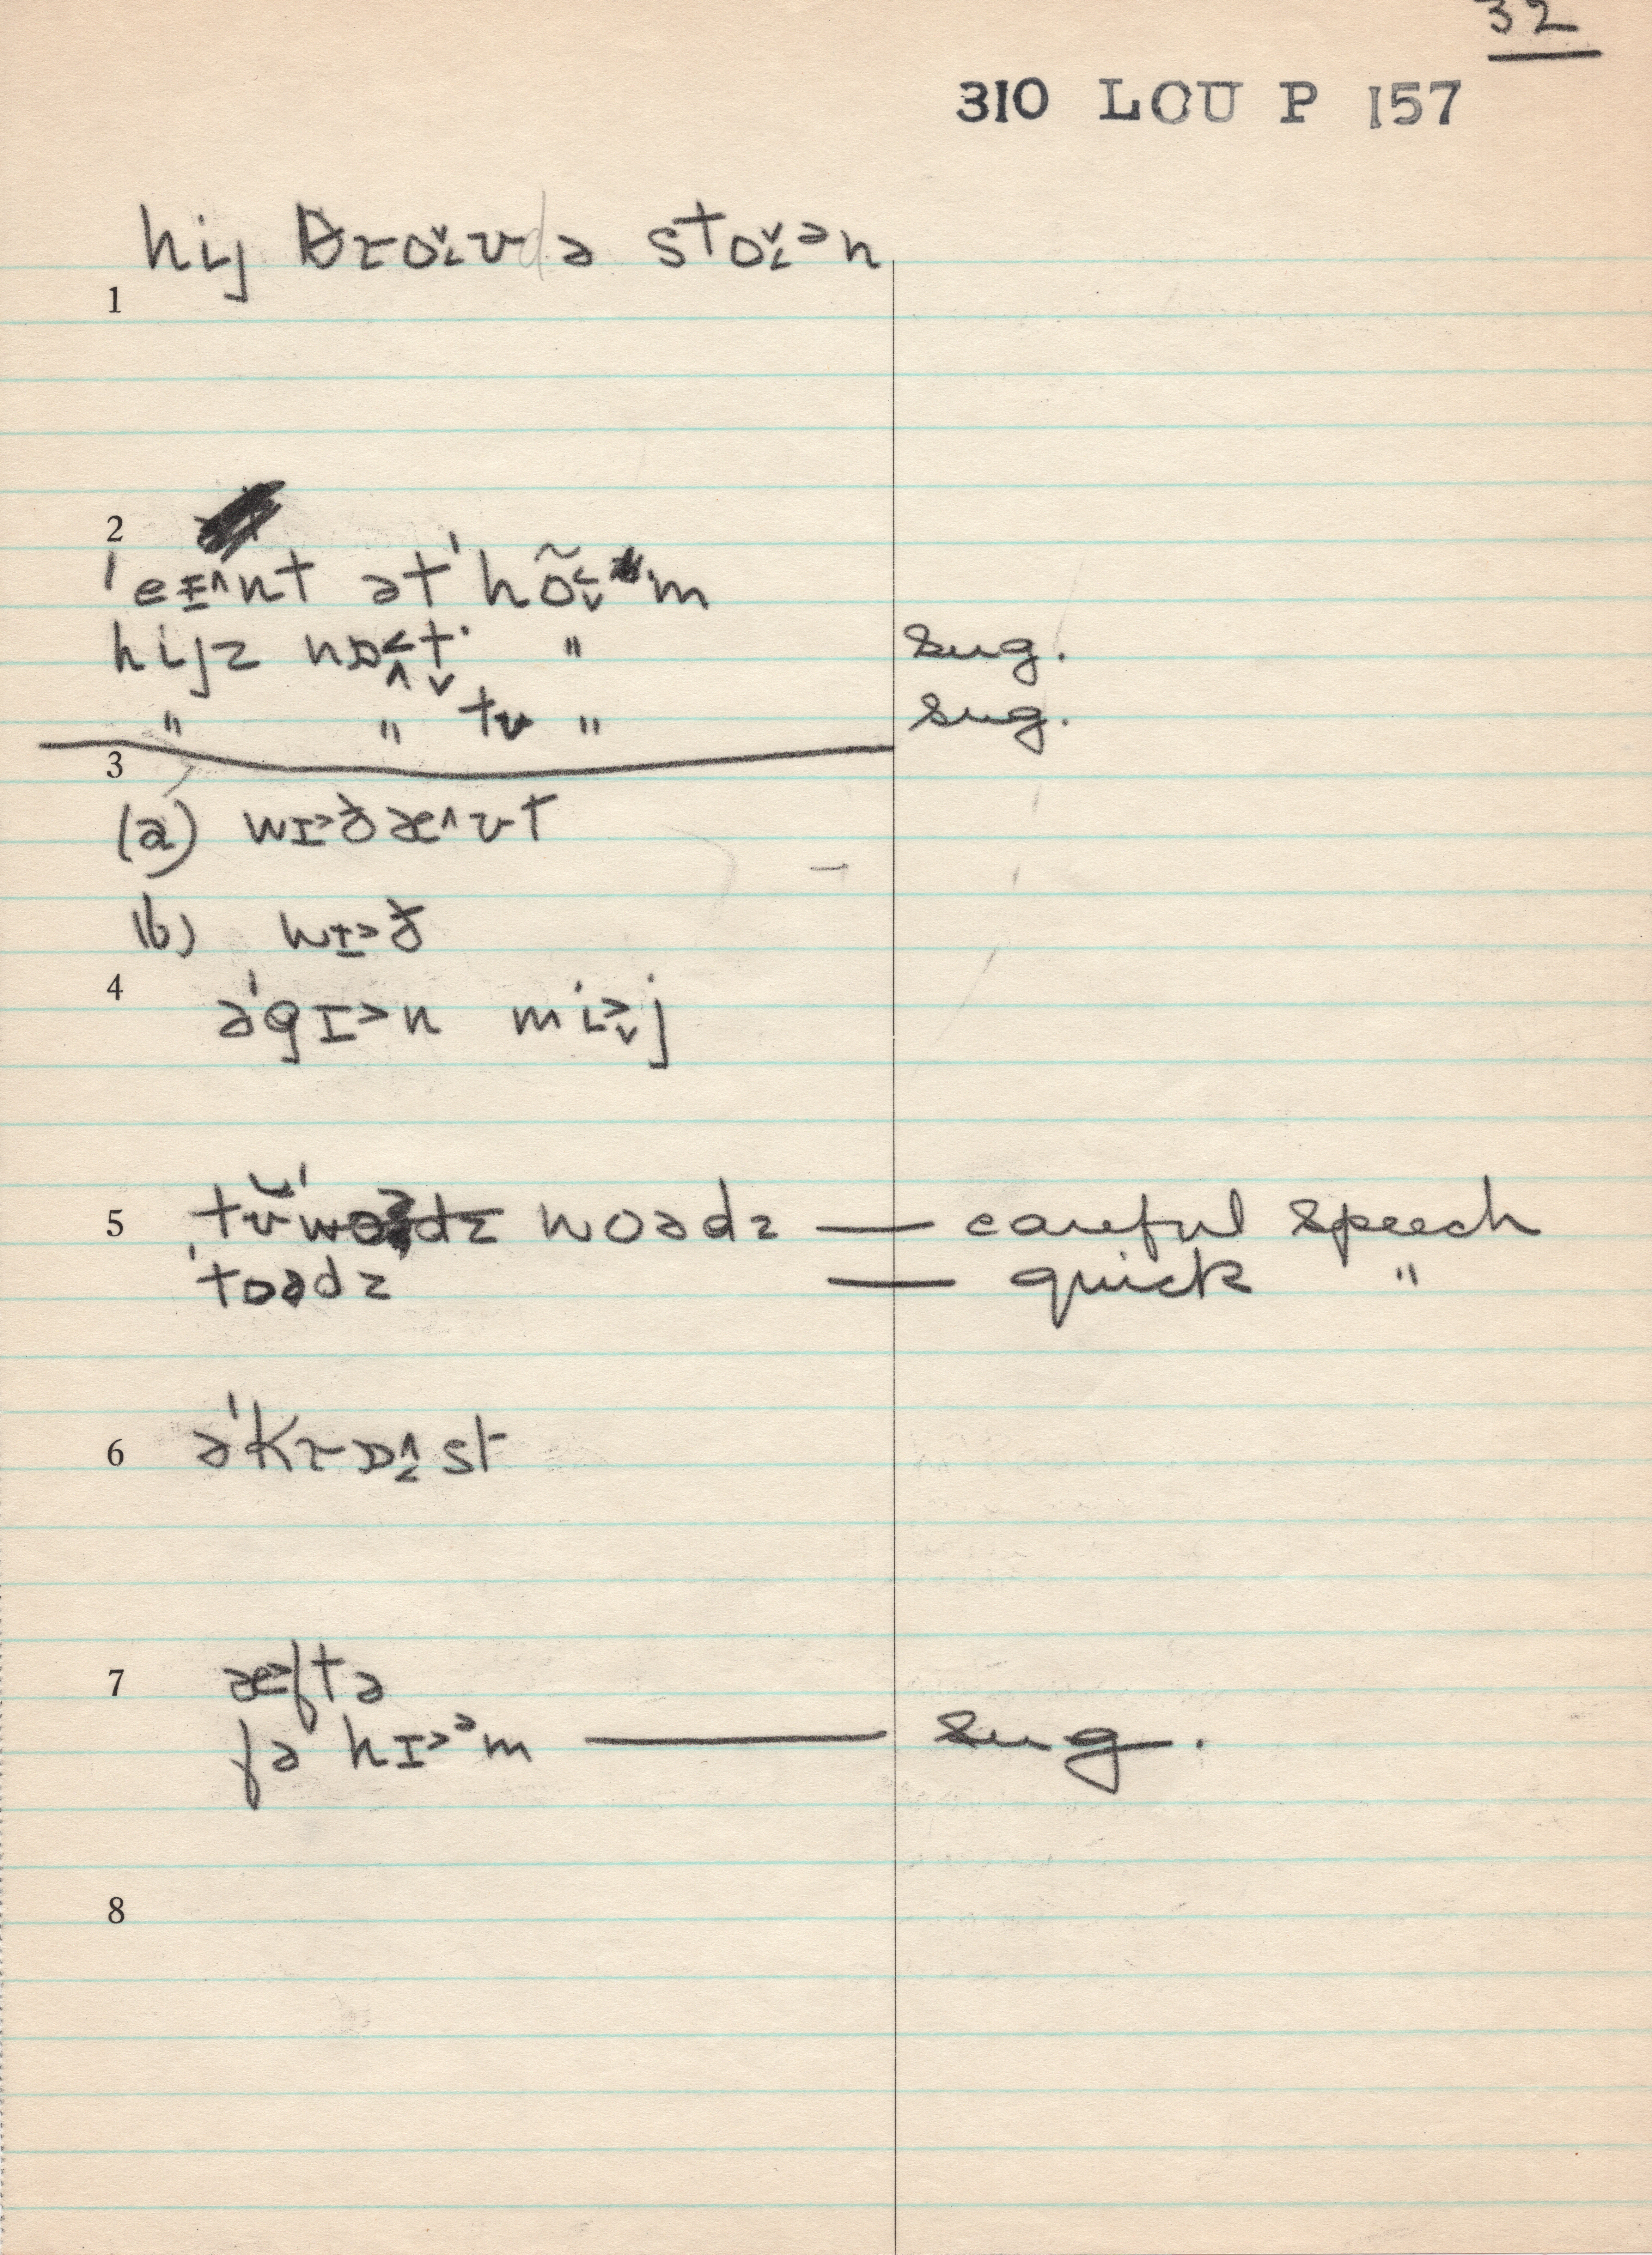 32
310 LOU P 157
hij θɾo˅˂ʊ də sto˅˂ᵊn
1
2
ˈeɪ^nt ətˈhõ˂˅m
hijz nɒ˂^t˅ " sug.
" " tʊ " sug.
3
(a) wɪ˃ðæ^ʊt
(b) wɪ˃ð
4 əˈgɪ˃n mi˃˅j
5 tʊ̆ˈwoədz woədz — careful speech
ˈtoədz — quick "
6 əˈkɾɒ^˂st
7 æ˃ftə
fə hɪ˃ᵊm — sug.
8